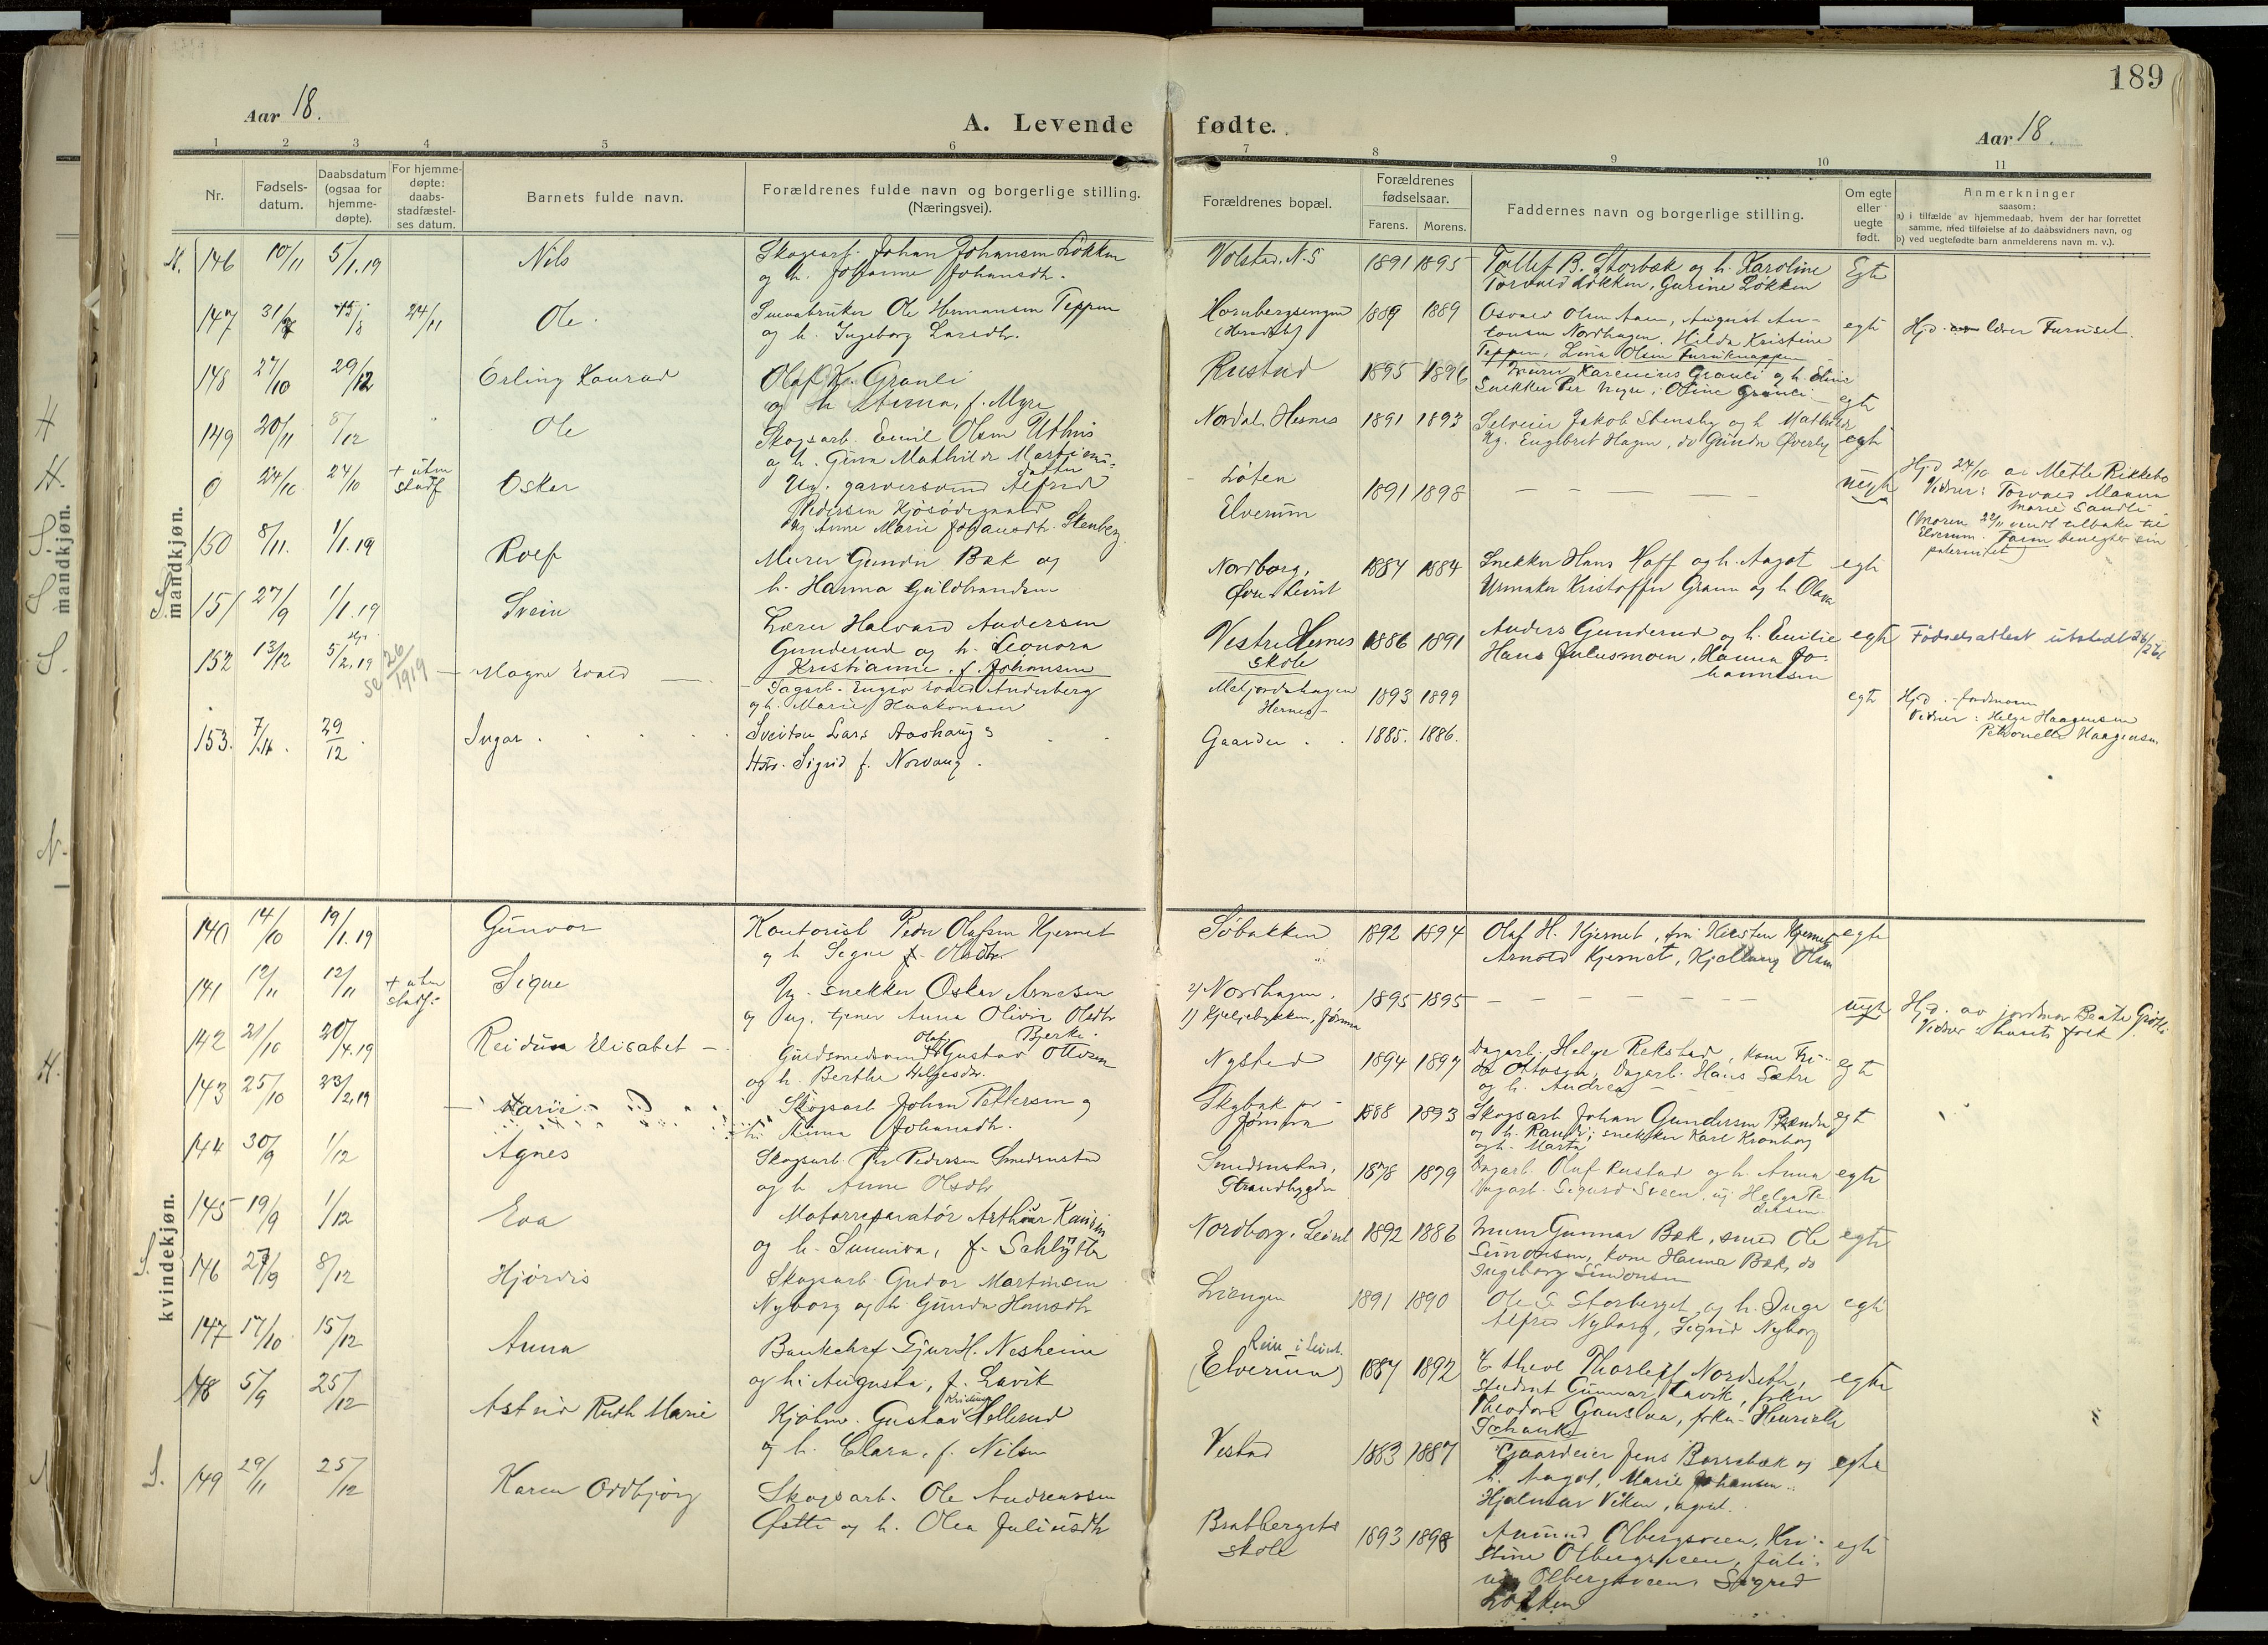 189
Aar 18.
A. Levende fødte.
Aar 18.
1 2 3 4 5 6 7 8 9 10 11
Nr.
Fødsels-
datum.
Daabsdatum
(ogsaa for
hjemme-
døpte).
For hjemme-
døpte:
daabs-
stadfæstel-
ses datum.
Barnets fulde navn.
Forældrenes fulde navn og borgerlige stilling.
(Næringsvei).
Forældrenes bopæl.
Forældrenes
fødselsaar.
Farens. Morens.
Faddernes navn og borgerlige stilling.
Om egte
eller
uegte
født.
Anmerkninger
saasom:
a) i tilfælde av hjemmedaab, hvem der har forrettet
samme, med tilføielse af to daabsvidners navn, og
b) ved uegtefødte barn anmelderens navn m. v.).
mandkjøn.
146 10/11 5/1.19 Nils
Skogsarb. Johan Johansen Løkken
og h. Johanne Johansdtr.
Volstad. N.S 1891 1895
Tollef B. Storbæk og h. Karoline
Torvald Løkken, Gurine Løkken
Egte
147 31/7 15/8 24/11 Ole.
Ole Hermansen Teppen
og h. Ingeborg Larsdtr.
1889 1889
Osvald Olsen Aaen, August An-
tonsen Nordhagen. Hilda Kristine
Teppen, Lina Olsen
egte
Hjd. lærer Furuset.
148 27/10 29/12 Erling Konrad
Olaf K. Granli
og h. f. Myre
Rustad 1895 1896
Karenius Granli og h. Eline
Snekker Per Myre, Oline Granli
egte
149 20/11 8/12 Ole
Skogsarb. Emil Olsen Uthus
og h. Gina Mathilde Martins-
datter
Nordal. Hernes 1891 1893
Selveier Jakob Stensby og h. Mathilde
Ug. Engebret Hagen, do Gunda Øverby
egte
0 24/10 24/10 + uten
stadf
Oskar
Ug. garversvend Alfred
Pedersen Kjøsødegaard
Ug Anne Marie Johansdtr. Stenberg
Løten
Elverum
1891 1898
uegte
Hjd 24/10 av Mette Rikkebo
Vidner: Torvald Maana
Marie Sandli
(Moren 22/11 vendt tilbake til
Elverum. Faren benegter sin
paternitet)
150 8/11. 1/1.19 Rolf
Murer Gunder Bæk og
h. Hanna Guldbrandsen
Nordborg,
Øvre Leiret
1884 1884
Snekker Hans Hoff og h. Aagot
Urmaker Kristoffer Gram og h. Olava
egte
151 27/9 1/1.19 Svein
Lærer Halvard Andersen
Gunderud og h. Leonora
Kristianne, f. Johansen
Vestre Hernes
skole
1886 1891
Anders Gunderud og h. Emilie
Hans Juliusmoen, Hanna Jo-
hannesen
egte
Fødselsattest utstedt
152 13/12 5/2.19 26/1919 Magne
Sagarb. Anderberg
og h. Marie Haakonsen
Hernes 1893 1899
egte
Hjd. jordmoren
Vidner: Helge Haagensen
Petronelle Haagensen
153. 7/11. 29/12. Ingar
Lars Aashaug
Hstr. Sigrid f. Norvang.
Gaarder 1885. 1886.
kvindekjøn.
140 14/10 19/1.19 Gunvor
Kontorist Peder Olafsen Kjernet
og h Signe f. Olsdtr.
Søbakken 1892 1894
Olaf H. Kjernet, fru Kirsten Kjernet
Arnold Kjernet, Kjellaug Olsen
egte
141 12/11 12/11 + uten
stadf.
Signe
Ug. snekker Oskar Arnesen
og ug. tjener Anna Olivia Olsdtr
Bjerke.
2) Nordhagen,
1) Kjeljebækken, Jømna
1895 1895
uegte
Hjd. av jordmor Beate
Vidner: husets folk.
142 21/10 20/4.19 Reidun Elisabet
Guldsmedsvend Olaf Gustav Ottesen
og h. Berthe Helgesdtr.
Nysted 1894 1897
Dagarb. Helge Rekstad, kone Fri-
da Ottosen, Dagarb. Hans Sætre
og h. Andrea
egte
143 25/10 23/2.19 Marie
Skogsarb Johan Pettersen og
h. Anna Johansdtr.
Skybak pr
Jømna
1888 1893
Skogsarb Johan Gundersen
og h. Randi; snekker Karl Kronborg
og h. Marta
egte
144 30/9 1/12 Agnes
Skogsarb. Per Pedersen Smedsrustad
og h Anne Olsdtr
Smedsrustad,
Strandbygda
1878 1879
Dagarb. Olaf Rustad og h. Anna
Dagarb. Sigurd Sveen, ug. Helga
egte
145 19/9 1/12 Eva
Motorreparatør Arthur
og h. Sunniva, f. Schlytter
Nordborg, Leiret 1892 1886
Murer Gunnar Bæk, smed Ole
Simonsen, kone Hanna Bæk, do
Ingeborg Simonsen
egte
146 27/9 8/12 Hjørdis
Skogsarb. Gudar Martinsen
Nyborg og h. Gunda Hansdtr
Liengen 1891 1890
Ole S Storberget og h. Inga
Alfred Nyborg, Sigrid Nyborg
egte
147 17/10 15/12 Anna
Bankchef Gjur H. Nesheim
og h. Augusta, f. Lavik
i Leiret.
(Elverum)
1887 1892
Thorleif Nordseth,
student Gunnar Lavik, frkn
Theodora, frkn. Henriette
Schanke
egte
148 5/9 25/12 Astrid Ruth Marie
Kjøbm. Gustav Hellerud
og h. Clara, f. Nilsen
Vestad 1883 1887
Gaardeier Jens Borrebæk og
h. Aagot, Marie Johansen.
Hjalmar Viken, agent.
egte
149 29/11 25/12 Karen Oddbjørg
Skogsarb. Ole Andreassen
Østli og h. Olea Juliusdtr
Bratbergets
skole
1893 1898
Amund Olbergsveen, Kri-
stine Olbergsveen, Juli-
us Olbergsveen, Sigrid
Løkken
egte